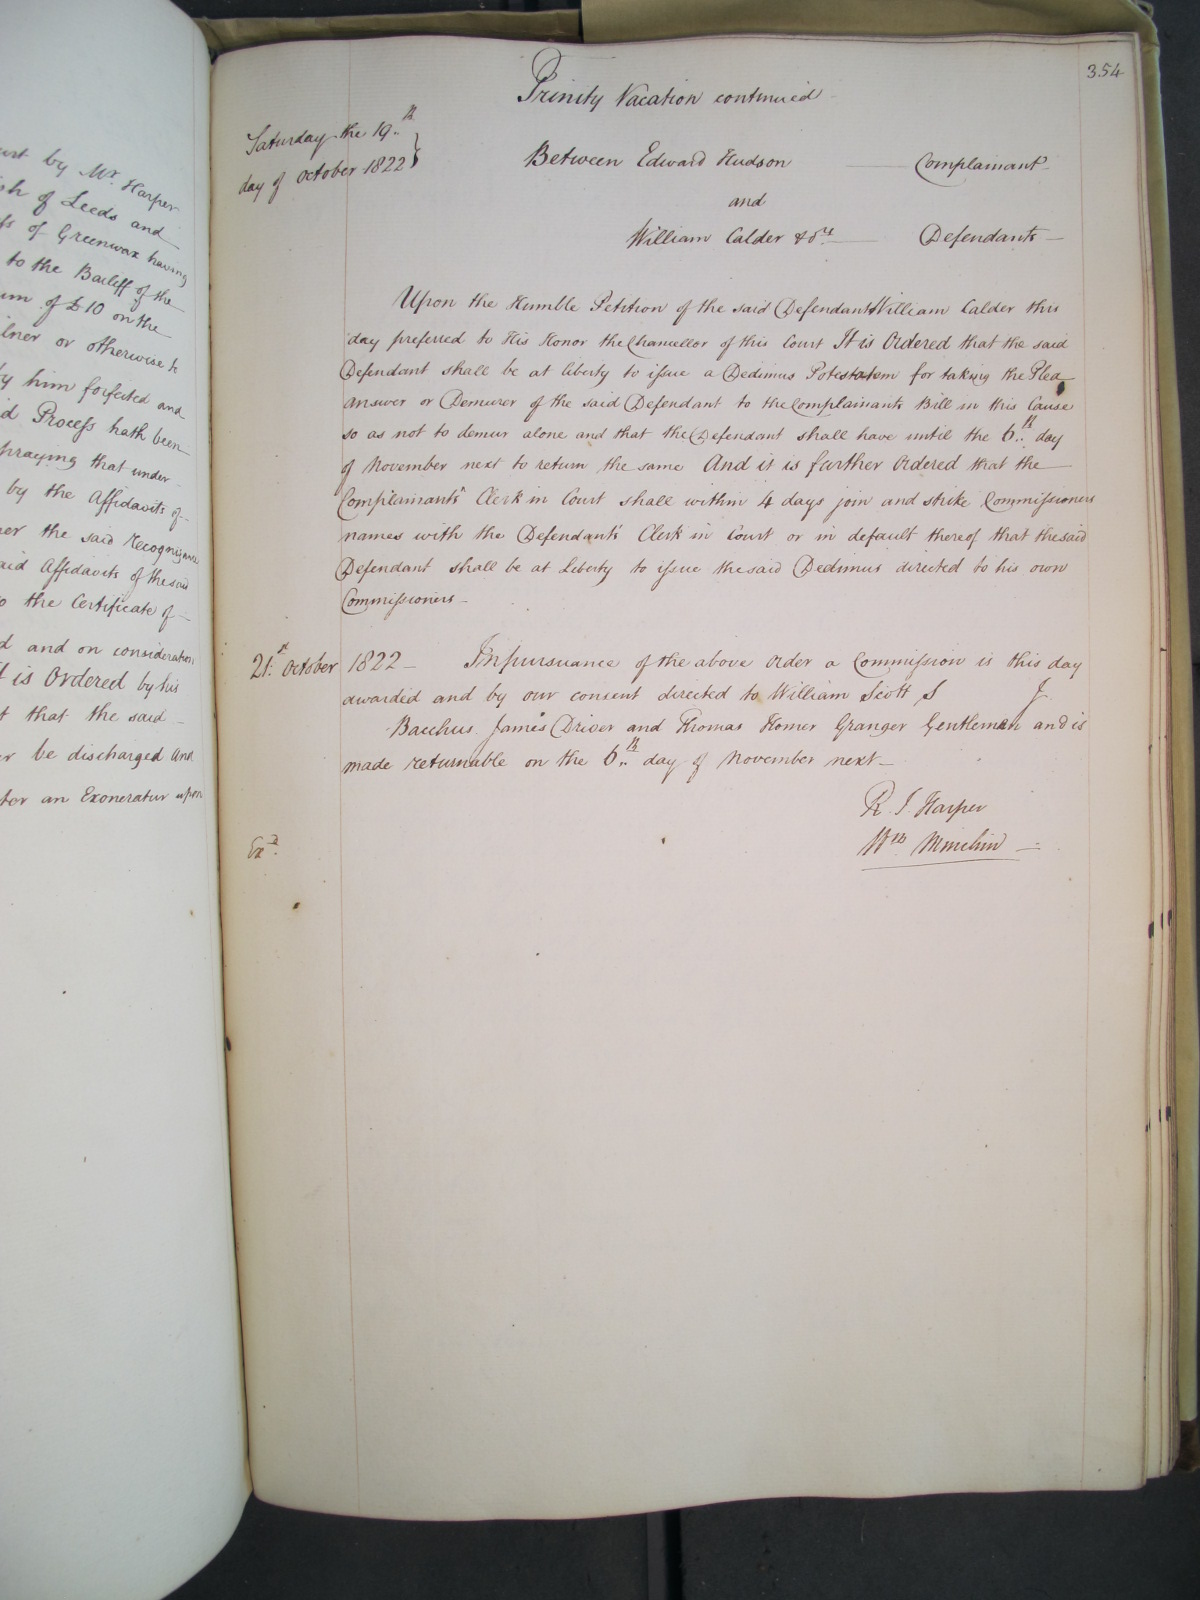 354
Trinity Vacation continued
Saturday the 19.th
day of October 1822
Between Edward Hudson Complainant
and
William Calder & ors Defendants
Upon the Humble Petition of the said Defendant William Calder this
day preferred to His Honor the Chancellor of this Court It is Ordered that the said
Defendant shall be at liberty to issue a Dedimus Potestatem for taking the Plea
Answer or Demurer of the said Defendant to the Complainants Bill in this Cause
so as not to demur alone and that the Defendant shall have until the 6.th day
of November next to return the same And it is further Ordered that the
Complainants Clerk in Court shall within 4 days join and strike Commissioners
names with the Defendants Clerk in Court or in default thereof that the said
Defendant shall be at Liberty to issue the said Dedimus directed to his own
Commissioners
21.st October 1822 In pursuance of the above Order a Commission is this day
awarded and by our consent directed to William Scott S J
Bacchus James Driver and Thomas Homer Granger Gentlemen and is
made returnable on the 6.th day of November next
R. J. Harper
Wm Minchin
Exd
by Mr Harper
of Leeds and
of Greenwax having
to the Bailiff of the
of £10 on the
or otherwise to
by him forfeited and
Process hath been
praying that under
by the Affidavits of
the said recognizance
Affidavits of the said
the Certificate of
and on consideration
is Ordered by his
that the said
be discharged and
an Exoneratur upon